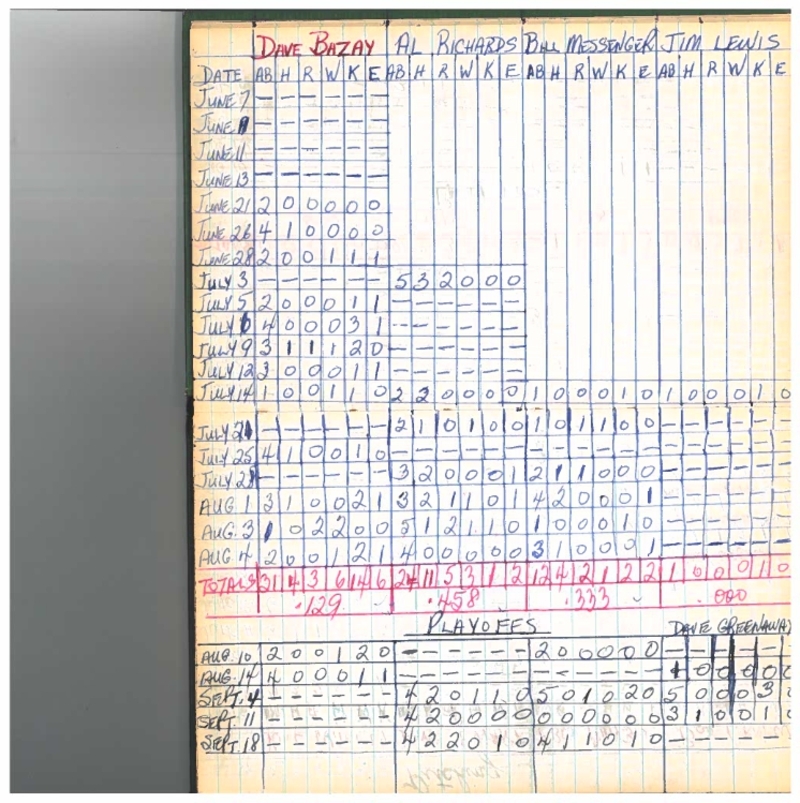 DAVE BAZAY AL RICHARDS BILL MESSENGER JIM LEWIS
DATE AB H R W K E AB H R W K E AB H R W K E AB H R W K E
JUNE 7 — — — — — —
JUNE — — — — — —
JUNE 11 — — — — — —
JUNE 13 — — — — — —
JUNE 21 2 0 0 0 0 0
JUNE 26 4 1 0 0 0 0
JUNE 28 2 0 0 1 1 1
JULY 3 — — — — — — 5 3 2 0 0 0
JULY 5 2 0 0 0 1 1 — — — — — —
JULY 6 4 0 0 0 3 1 — — — — — —
JULY 9 3 1 1 1 2 0 — — — — — —
JULY 12 3 0 0 0 1 1 — — — — — —
JULY 14 1 0 0 1 1 0 2 2 0 0 0 0 1 0 0 0 1 0 1 0 0 0 1 0
JULY — — — — — — 2 1 0 1 0 0 1 0 1 1 0 0 — — — — — —
JULY 25 4 1 0 0 1 0 — — — — — — — — — — — — — — — — — —
JULY — — — — — — 3 2 0 0 0 1 2 1 1 0 0 0 — — — — — —
AUG 1 3 1 0 0 2 1 3 2 1 1 0 1 4 2 0 0 0 1 — — — — — —
AUG. 3 1 0 2 2 0 0 5 1 2 1 1 0 1 0 0 0 1 0 — — — — — —
AUG 4 2 0 0 1 2 1 4 0 0 0 0 0 3 1 0 0 0 1 — — — — — —
TOTALS 31 4 3 6 14 6 24 11 5 3 1 2 12 4 2 1 2 2 1 0 0 0 1 0
.129 .458 .333 .000
PLAYOFFS DAVE GREENAWAY
AUG. 10 2 0 0 1 2 0 — — — — — — 2 0 0 0 0 0 — — — — — —
AUG. 14 4 0 0 0 1 1 — — — — — — 1 0 0 0 0 0
SEPT. 4 — — — — — — 4 2 0 1 1 0 5 0 1 0 2 0 5 0 0 0 3 0
SEPT. 11 — — — — — — 4 2 0 0 0 0 0 0 0 0 0 0 3 1 0 0 1 0
SEPT. 18 — — — — — — 4 2 2 0 1 0 4 1 1 0 1 0 — — — — —